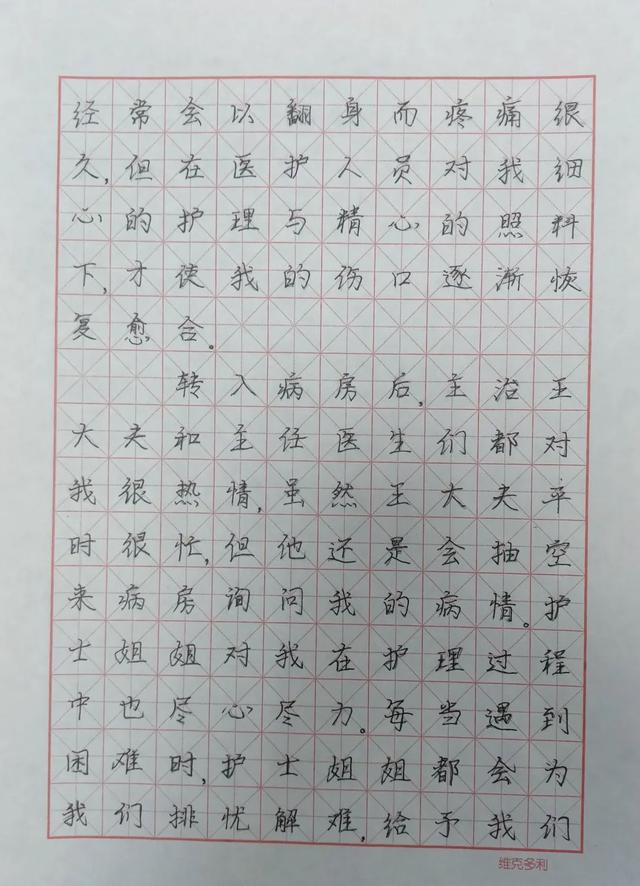 经常会以翻身而疼痛很
久,但在医护人员对我细
心的护理与精心的照料
下,才使我的伤口逐渐恢
复愈合。
转入病房后,主治王
大夫和主任医生们都对
我很热情,虽然王大夫平
时很忙,但他还是会抽空
来病房询问我的病情。护
士姐姐对我在护理过程
中也尽心尽力。每当遇到
困难时,护士姐姐都会为
我们排忧解难,给予我们
维克多利